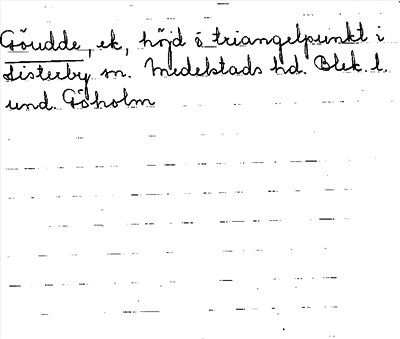 Göudde, ek, höjd o triangelpunkt i
Listerby sn. Medelstads hd. Blek. l.
und. Göholm